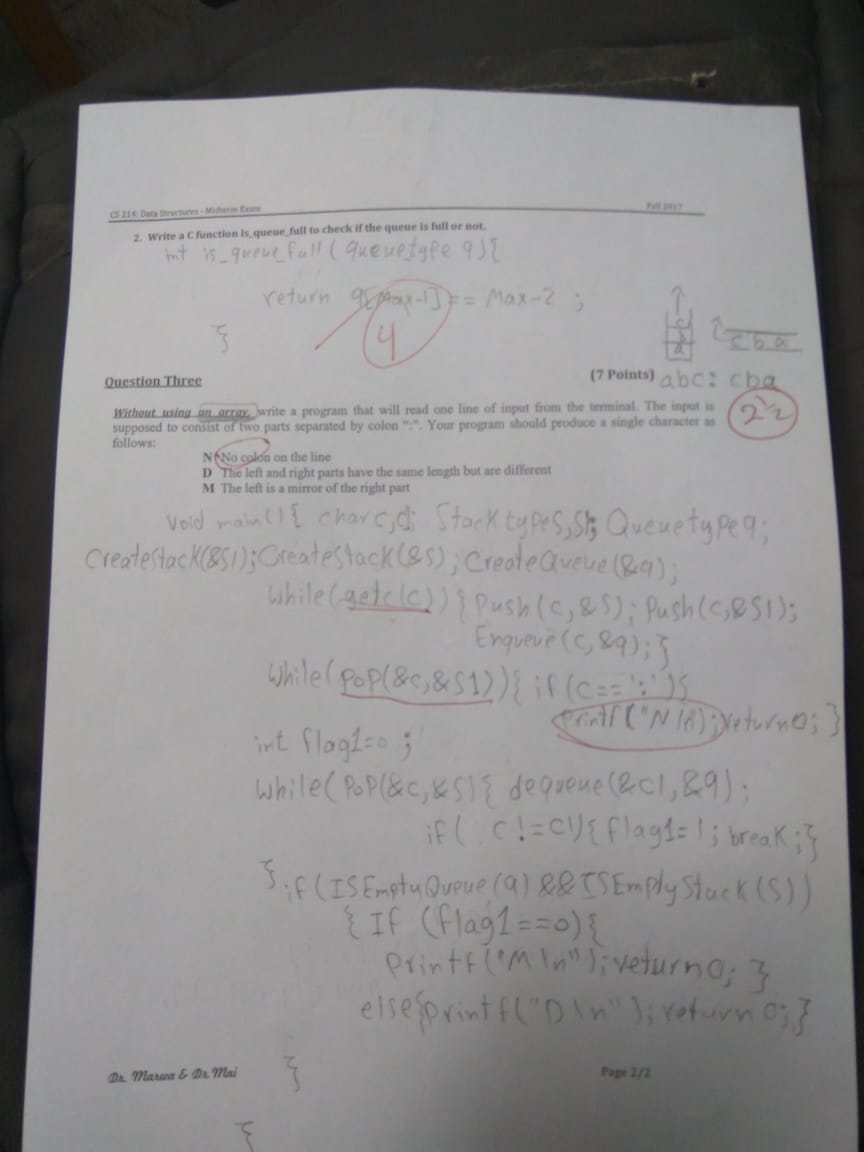 CS 214: Data Structures - Midterm Exam
Fall 2017
2. Write a C function is_queue_full to check if the queue is full or not.
int is_queue_full ( queuetype q){
return q[Max-1] == Max-2 ;
4
}
c
b
a
c b a
Question Three
(7 Points)
abc: cba
2 1/2
Without using an array, write a program that will read one line of input from the terminal. The input is
supposed to consist of two parts separated by colon ":". Your program should produce a single character as
follows:
N No colon on the line
D The left and right parts have the same length but are different
M The left is a mirror of the right part
Void main(){ char c,d; Stacktype S,S1; Queuetype q;
CreateStack(&S1); CreateStack(&S); CreateQueue(&q);
While(getc(c)){ Push(c,&S); Push(c,&S1);
Enqueue(c,&q);}
While(POP(&c,&S1)){ if(c==':'){
printf("N\n"); return 0; }
int flag1=0 ;
While( POP(&c,&S){ dequeue(&c1,&q);
if( c!=c1){flag1=1; break;}
}
if(ISEmptyQueue(q) && ISEmptyStack(S))
{ If (flag1==0){
printf("M\n"); return 0; }
else{printf("D\n"); return 0;}
}
Dr. Marwa & Dr. Mai
Page 2/2
}